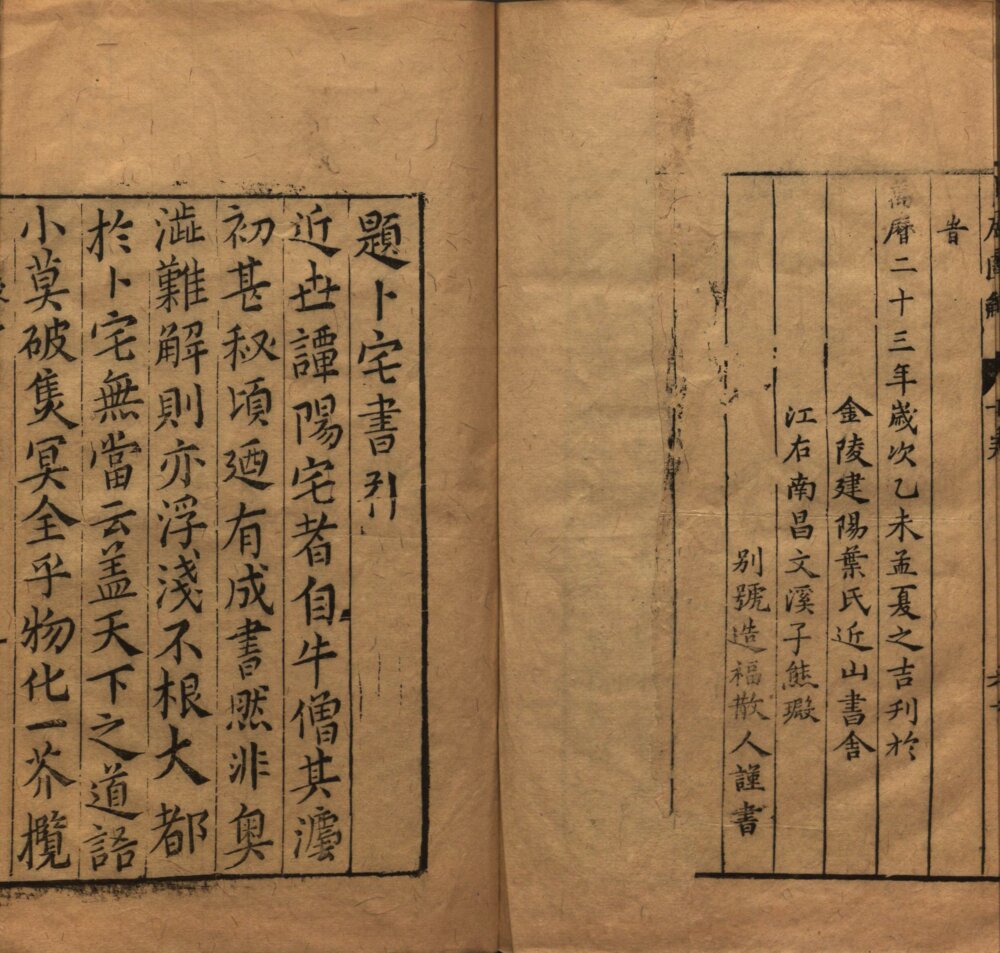 旹
萬曆二十三年歲次乙未孟夏之吉刊於
金陵建陽葉氏近山書舍
江右南昌文溪子熊瑖
別號造福散人謹書
題卜宅書引
近世譚陽宅者自牛僧其澐
初甚秘頃廼有成書然非奧
澁難解則亦浮淺不根大都
於卜宅無當云盖天下之道語
小莫破隻冥全乎物化一芥攬